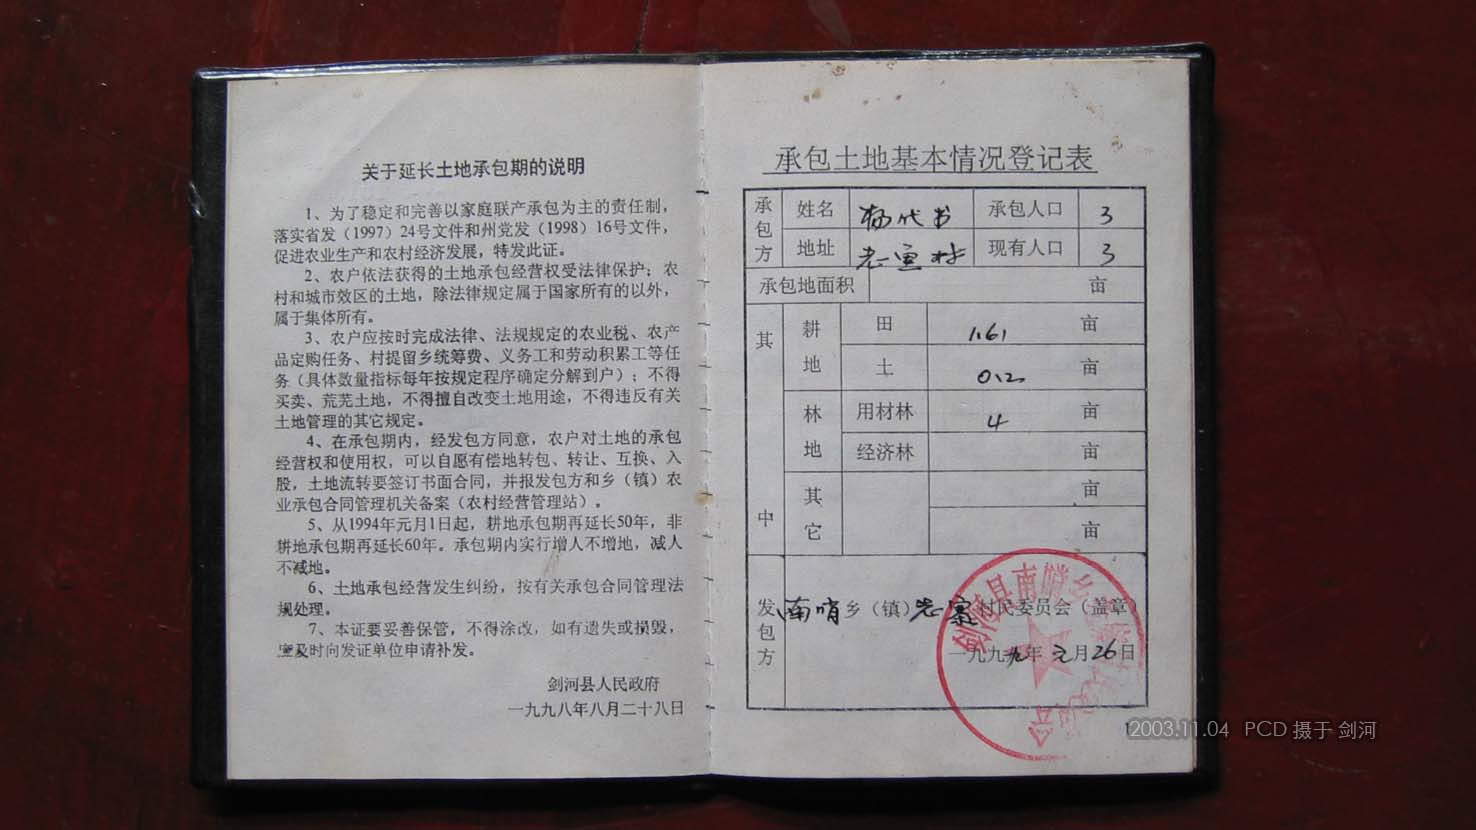 关于延长土地承包期的说明
1、为了稳定和完善以家庭联产承包为主的责任制，
落实省发（1997）24号文件和州党发（1998）16号文件，
促进农业生产和农村经济发展，特发此证。
2、农户依法获得的土地承包经营权受法律保护；农
村和城市效区的土地，除法律规定属于国家所有的以外，
属于集体所有。
3、农户应按时完成法律、法规规定的农业税、农产
品定购任务、村提留乡统筹费、义务工和劳动积累工等任
务（具体数量指标每年按规定程序确定分解到户）；不得
买卖、荒芜土地，不得擅自改变土地用途，不得违反有关
土地管理的其它规定。
4、在承包期内，经发包方同意，农户对土地的承包
经营权和使用权，可以自愿有偿地转包、转让、互换、入
股，土地流转要签订书面合同，并报发包方和乡（镇）农
业承包合同管理机关备案（农村经营管理站）。
5、从1994年元月1日起，耕地承包期再延长50年，非
耕地承包期再延长60年。承包期内实行增人不增地，减人
不减地。
6、土地承包经营发生纠纷，按有关承包合同管理法
规处理。
7、本证要妥善保管，不得涂改，如有遗失或损毁，
应及时向发证单位申请补发。
剑河县人民政府
一九九八年八月二十八日
承包土地基本情况登记表
承包方 姓名 杨代书 承包人口 3
地址 老 村 现有人口 3
承包地面积 亩
其中 耕地 田 1.61 亩
土 0.2 亩
林地 用材林 4 亩
经济林 亩
其它 亩
亩
发包方 南哨乡（镇）老寨村民委员会（盖章）
一九九九年元月26日
剑河县南哨乡
1
2003.11.04 PCD 摄于 剑河